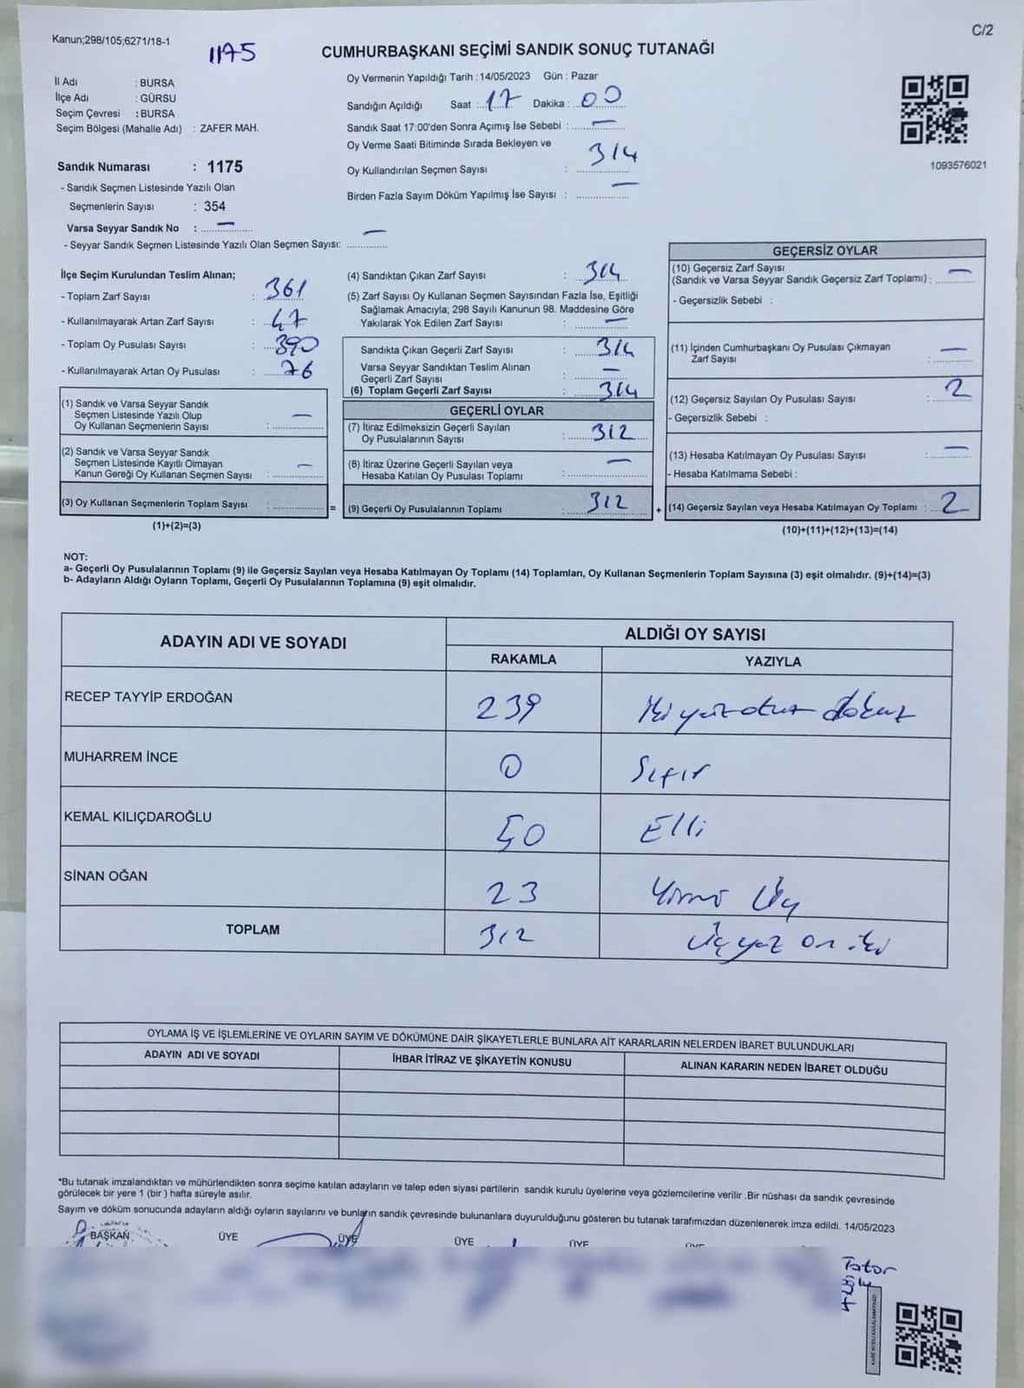 Kanun;298/105;6271/18-1
1175
C/2
CUMHURBAŞKANI SEÇİMİ SANDIK SONUÇ TUTANAĞI
İl Adı : BURSA
İlçe Adı : GÜRSU
Seçim Çevresi : BURSA
Seçim Bölgesi (Mahalle Adı) : ZAFER MAH.
Sandık Numarası : 1175
- Sandık Seçmen Listesinde Yazılı Olan
Seçmenlerin Sayısı : 354
Varsa Seyyar Sandık No : —
- Seyyar Sandık Seçmen Listesinde Yazılı Olan Seçmen Sayısı: —
Oy Vermenin Yapıldığı Tarih : 14/05/2023 Gün : Pazar
Sandığın Açıldığı Saat : 17 Dakika : 00
Sandık Saat 17:00'den Sonra Açımış İse Sebebi : —
Oy Verme Saati Bitiminde Sırada Bekleyen ve
Oy Kullandırılan Seçmen Sayısı : 314
Birden Fazla Sayım Döküm Yapılmış İse Sayısı : —
1093576021
İlçe Seçim Kurulundan Teslim Alınan;
- Toplam Zarf Sayısı : 361
- Kullanılmayarak Artan Zarf Sayısı : 47
- Toplam Oy Pusulası Sayısı : 390
- Kullanılmayarak Artan Oy Pusulası : 76
(1) Sandık ve Varsa Seyyar Sandık
Seçmen Listesinde Yazılı Olup
Oy Kullanan Seçmenlerin Sayısı : —
(2) Sandık ve Varsa Seyyar Sandık
Seçmen Listesinde Kayıtlı Olmayan
Kanun Gereği Oy Kullanan Seçmen Sayısı : —
(3) Oy Kullanan Seçmenlerin Toplam Sayısı :
(1)+(2)=(3)
=
(4) Sandıktan Çıkan Zarf Sayısı : 314
(5) Zarf Sayısı Oy Kullanan Seçmen Sayısından Fazla İse, Eşitliği
Sağlamak Amacıyla; 298 Sayılı Kanunun 98. Maddesine Göre
Yakılarak Yok Edilen Zarf Sayısı : —
Sandıkta Çıkan Geçerli Zarf Sayısı : 314
Varsa Seyyar Sandıktan Teslim Alınan
Geçerli Zarf Sayısı : —
(6) Toplam Geçerli Zarf Sayısı : 314
GEÇERLİ OYLAR
(7) İtiraz Edilmeksizin Geçerli Sayılan
Oy Pusulalarının Sayısı : 312
(8) İtiraz Üzerine Geçerli Sayılan veya
Hesaba Katılan Oy Pusulası Toplamı : —
(9) Geçerli Oy Pusulalarının Toplamı : 312
+
GEÇERSİZ OYLAR
(10) Geçersiz Zarf Sayısı
(Sandık ve Varsa Seyyar Sandık Geçersiz Zarf Toplamı) : —
- Geçersizlik Sebebi :
(11) İçinden Cumhurbaşkanı Oy Pusulası Çıkmayan
Zarf Sayısı : —
(12) Geçersiz Sayılan Oy Pusulası Sayısı : 2
- Geçersizlik Sebebi :
(13) Hesaba Katılmayan Oy Pusulası Sayısı : —
- Hesaba Katılmama Sebebi :
(14) Geçersiz Sayılan veya Hesaba Katılmayan Oy Toplamı : 2
(10)+(11)+(12)+(13)=(14)
NOT:
a- Geçerli Oy Pusulalarının Toplamı (9) ile Geçersiz Sayılan veya Hesaba Katılmayan Oy Toplamı (14) Toplamları, Oy Kullanan Seçmenlerin Toplam Sayısına (3) eşit olmalıdır. (9)+(14)=(3)
b- Adayların Aldığı Oyların Toplamı, Geçerli Oy Pusulalarının Toplamına (9) eşit olmalıdır.
ADAYIN ADI VE SOYADI
ALDIĞI OY SAYISI
RAKAMLA YAZIYLA
RECEP TAYYİP ERDOĞAN 239 İkiyüzotuz dokuz
MUHARREM İNCE 0 Sıfır
KEMAL KILIÇDAROĞLU 50 Elli
SİNAN OĞAN 23 Yirmi Üç
TOPLAM 312 Üçyüz on iki
OYLAMA İŞ VE İŞLEMLERİNE VE OYLARIN SAYIM VE DÖKÜMÜNE DAİR ŞİKAYETLERLE BUNLARA AİT KARARLARIN NELERDEN İBARET BULUNDUKLARI
ADAYIN ADI VE SOYADI İHBAR İTİRAZ VE ŞİKAYETİN KONUSU ALINAN KARARIN NEDEN İBARET OLDUĞU
*Bu tutanak imzalandıktan ve mühürlendikten sonra seçime katılan adayların ve talep eden siyasi partilerin sandık kurulu üyelerine veya gözlemcilerine verilir .Bir nüshası da sandık çevresinde
görülecek bir yere 1 (bir ) hafta süreyle asılır.
Sayım ve döküm sonucunda adayların aldığı oyların sayılarını ve bunların sandık çevresinde bulunanlara duyurulduğunu gösteren bu tutanak tarafımızdan düzenlenerek imza edildi. 14/05/2023
BAŞKAN ÜYE ÜYE ÜYE ÜYE